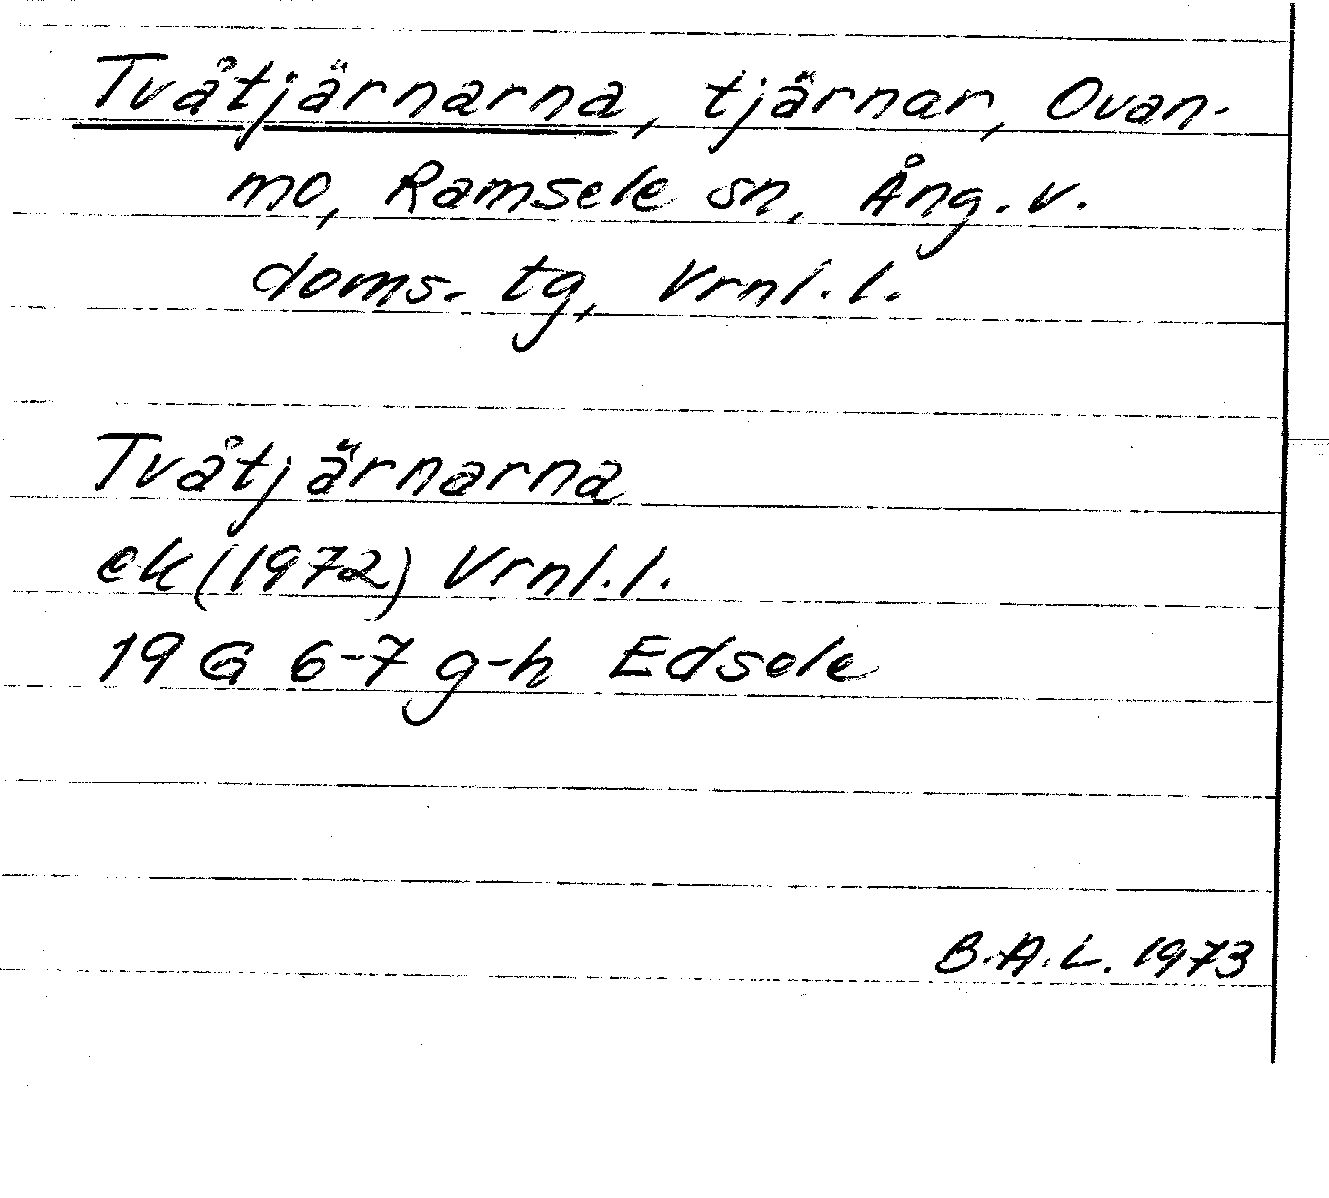 Tvåtjärnarna, tjärnar, Ovan-
mo, Ramsele sn, Ång. v.
doms. tg, Vrnl. l.
Tvåtjärnarna
ek (1972) Vrnl. l.
19 G 6-7 g-h Edsele
B.A.L. 1973